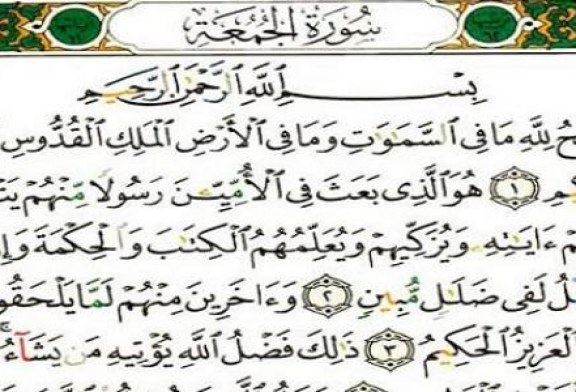 سُورَةُ الْجُمُعَةِ
بِسْمِ اللَّهِ الرَّحْمَٰنِ الرَّحِيمِ
حُ لِلَّهِ مَا فِي السَّمَٰوَٰتِ وَمَا فِي الْأَرْضِ الْمَلِكِ الْقُدُّوسِ
١ هُوَ الَّذِي بَعَثَ فِي الْأُمِّيِّۧنَ رَسُولًا مِّنْهُمْ
ءَايَٰتِهِۦ وَيُزَكِّيهِمْ وَيُعَلِّمُهُمُ الْكِتَٰبَ وَالْحِكْمَةَ
لَفِي ضَلَٰلٍ مُّبِينٍ ٢ وَءَاخَرِينَ مِنْهُمْ لَمَّا يَلْحَقُو
الْعَزِيزُ الْحَكِيمُ ٣ ذَٰلِكَ فَضْلُ اللَّهِ يُؤْتِيهِ مَن يَشَآءُ